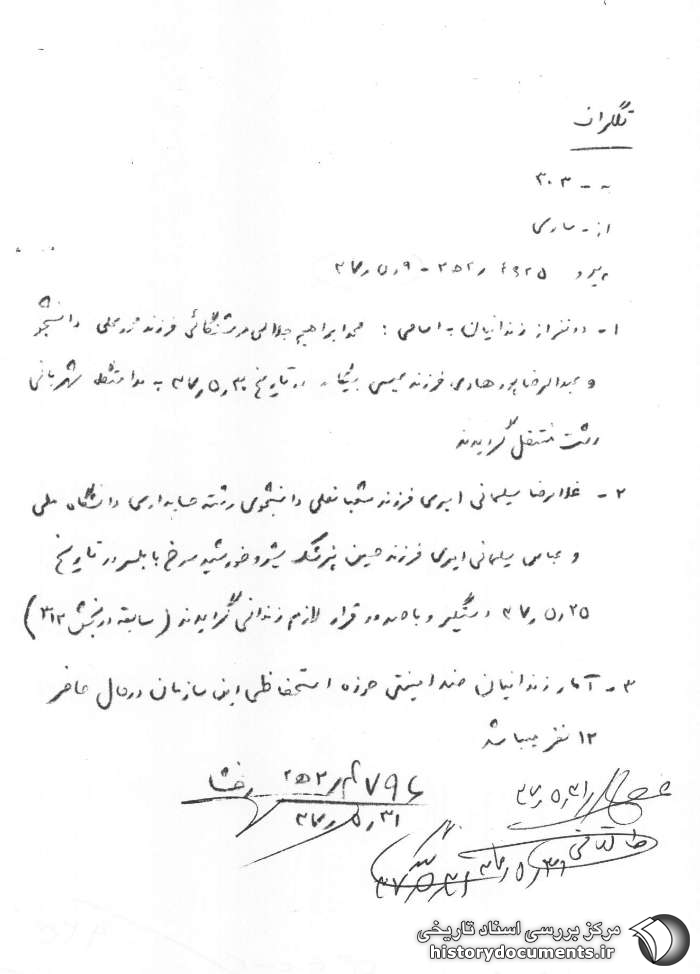 تلگراف
به - ۳۰۳
از - ساری
پیرو ۶۹۲۵ / ۲ه۲ - ۹ ر ۵ ر ۳۷
۱- دو نفر از زندانیان به اسامی : محمد ابراهیم جلالی فرزند دانشجو
و عبدالرضا پور هادی فرزند عیسی بیکار در تاریخ ۳۰ ر ۵ ر ۳۷ به ندامتگاه شهربانی
رشت منتقل گردیدند
۲- غلامرضا سلیمانی امیری فرزند شعبانعلی دانشجوی رشته حسابداری دانشگاه ملی
و عباس سلیمانی امیری فرزند حسین پزشک شیر و خورشید سرخ بابلسر در تاریخ
۲۵ ر ۵ ر ۳۷ دستگیر و با صدور قرار لازم زندانی گردیدند ( سابقه در بخش ۳۱۲ )
۳- آمار زندانیان ضد امنیتی حوزه استحفاظی این سازمان در حال حاضر
۱۲ نفر میباشد
۷۷۹۶ / ۲ه۲
۳۱ ر ۵ ر ۳۷
۳۱ ر ۵ ر ۳۷
طالقانی
۳۱ ر ۵ ر ۳۷
مرکز بررسی اسناد تاریخی
historydocuments.ir